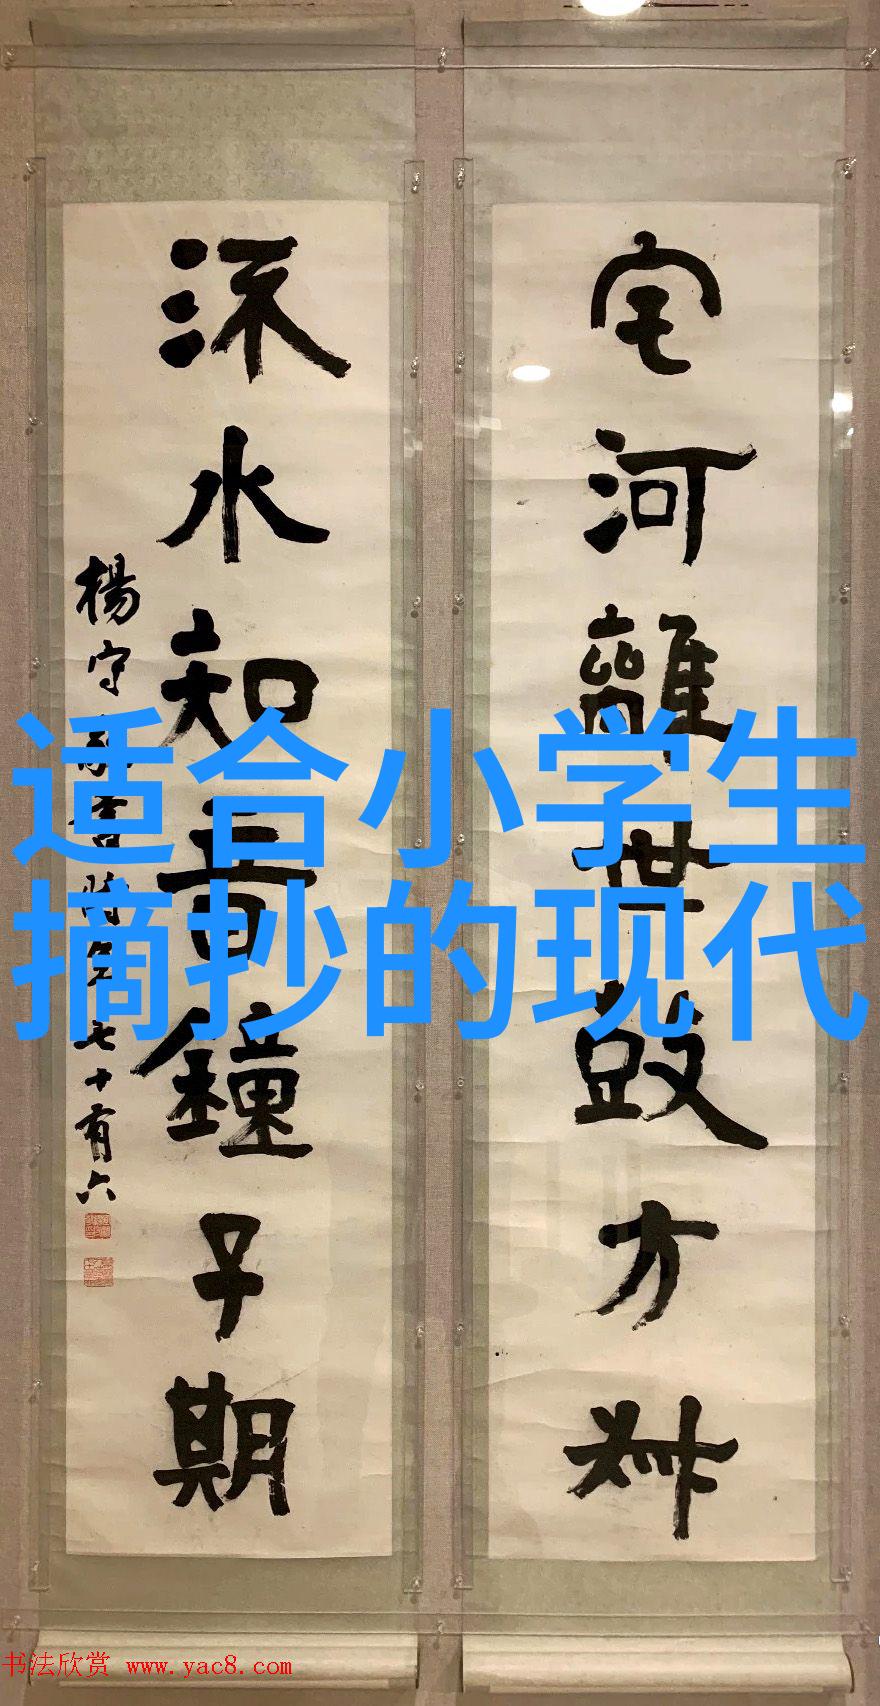 适合小学生
摘抄的现代
宅河離世鼓方叔
流水知音鐘子期
楊守敬書時年七十有六
书法欣赏 www.yac8.com